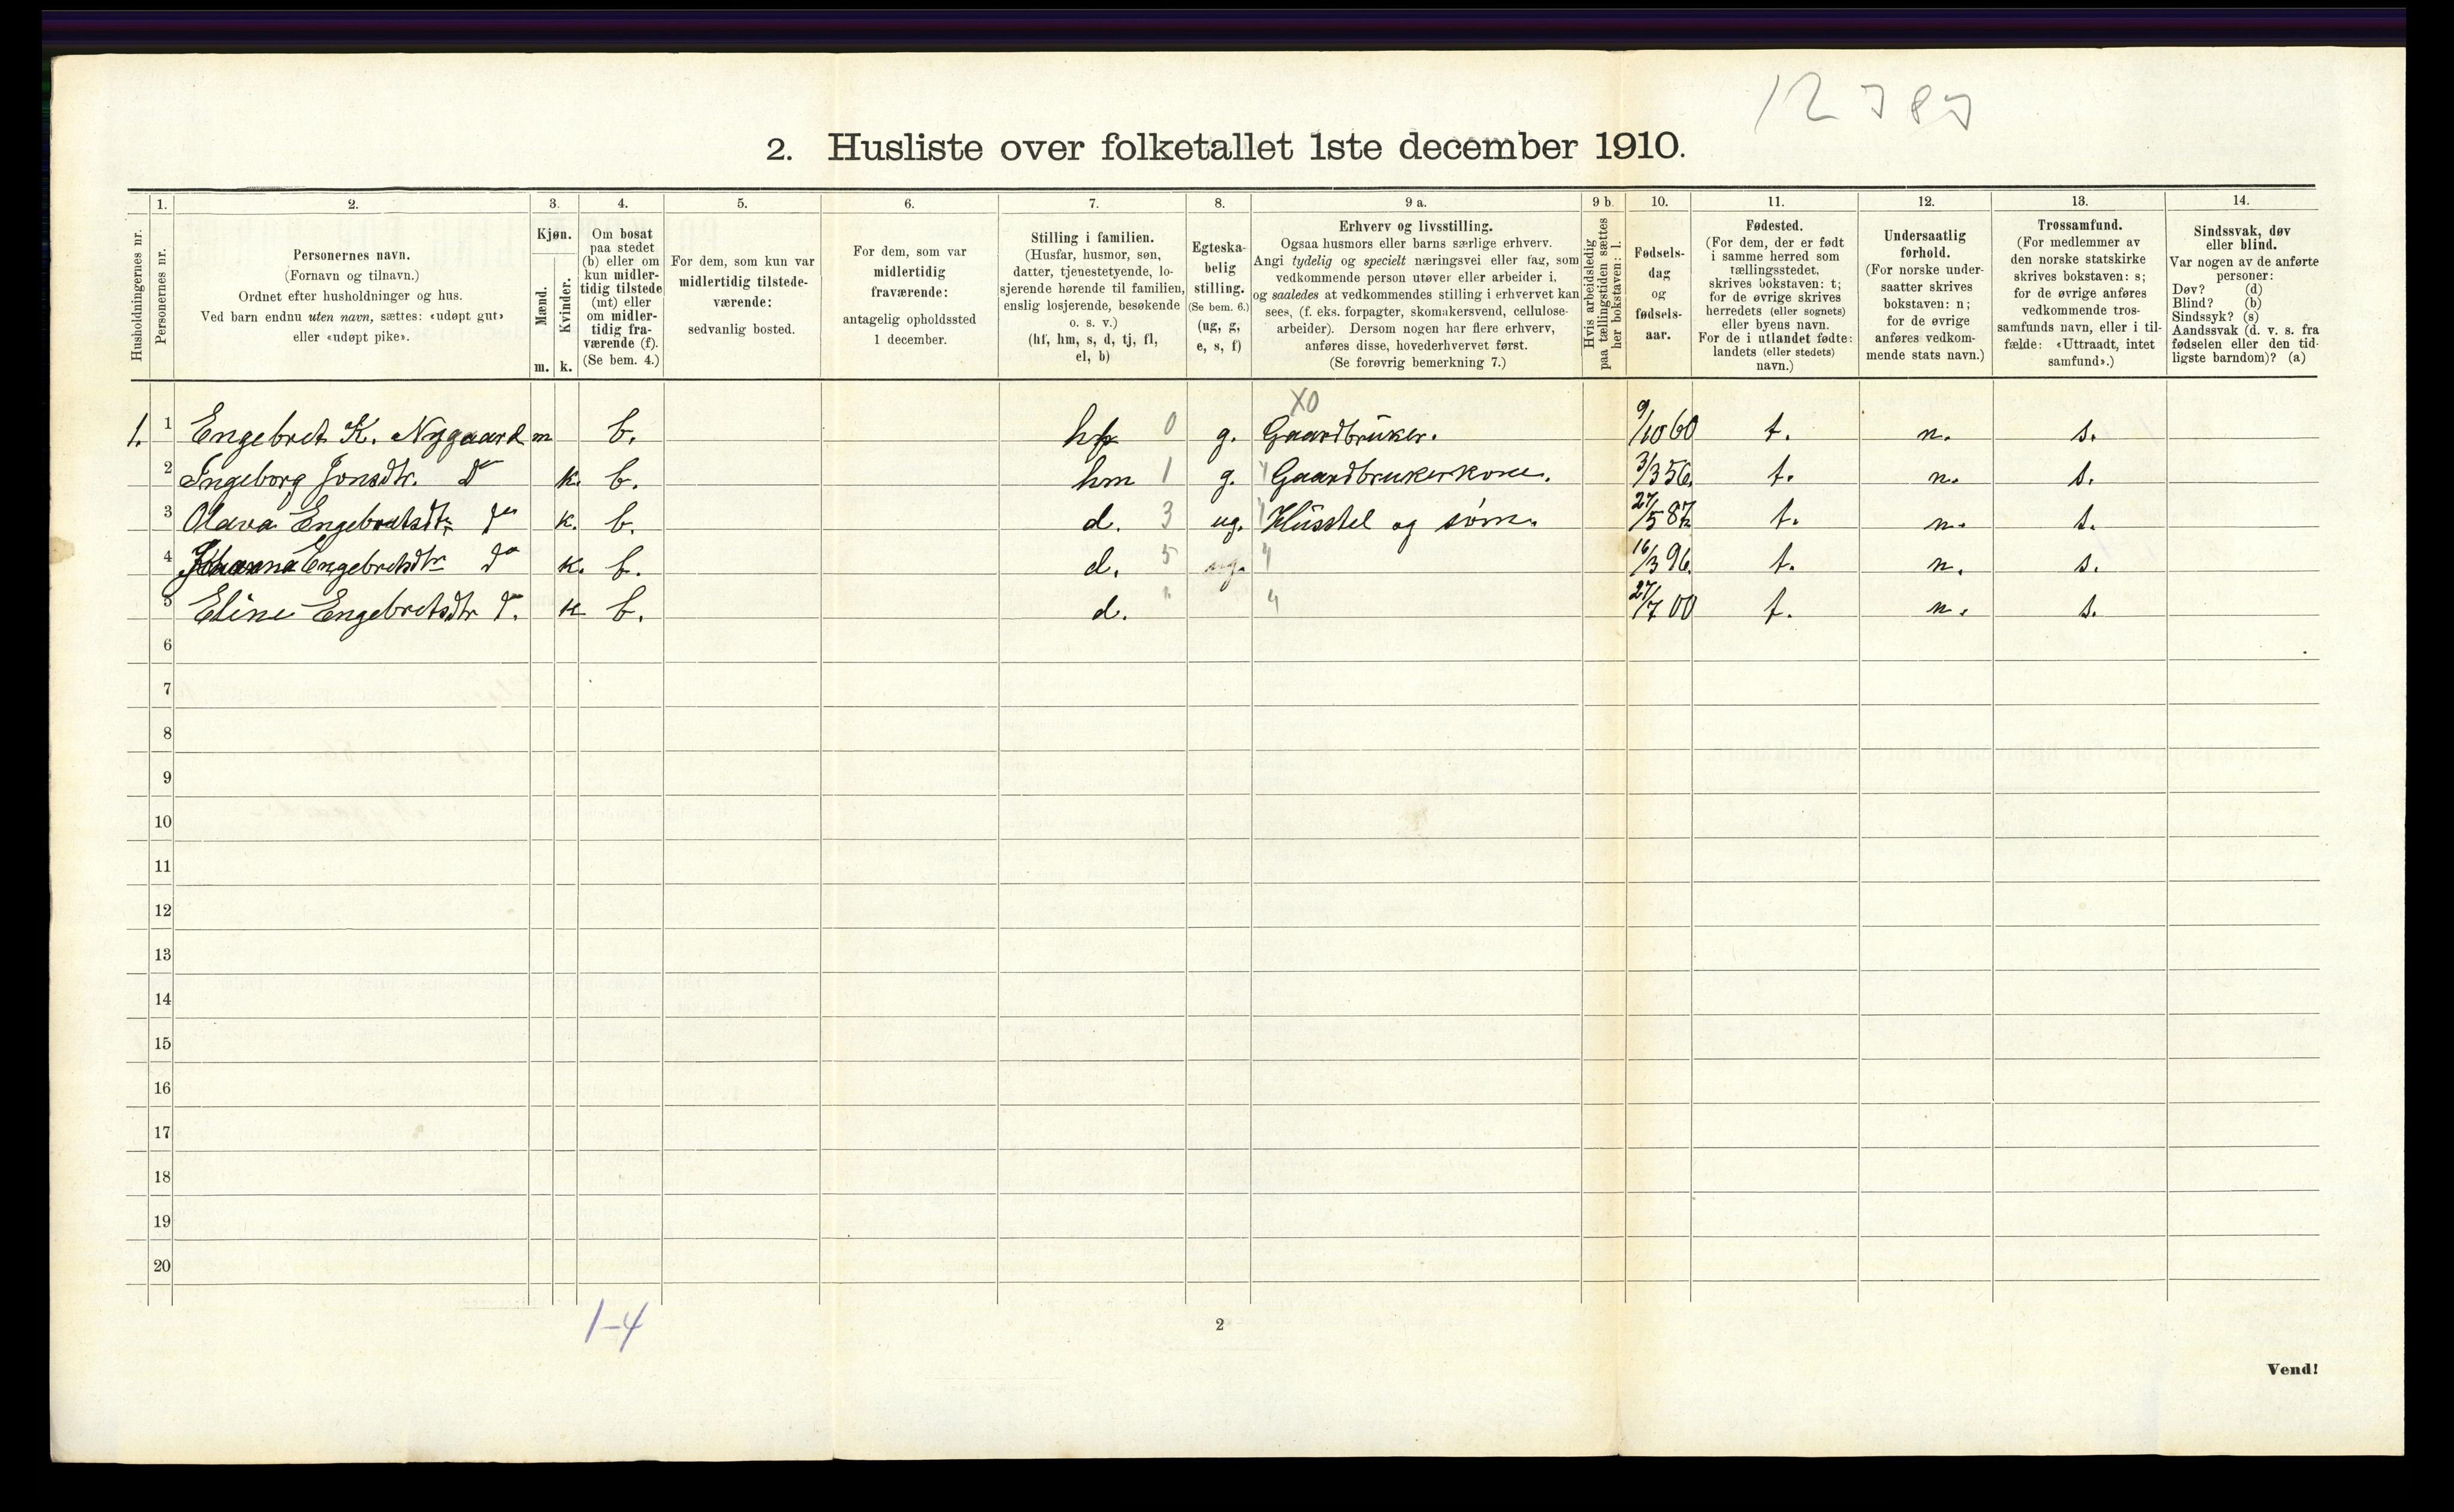 12787
2. Husliste over folketallet 1ste december 1910.
1. 2. 3. 4. 5. 6. 7. 8. 9 a. 9 b. 10. 11. 12. 13. 14.
Husholdningernes nr.
Personernes nr.
Personernes navn.
(Fornavn og tilnavn.)
Ordnet efter husholdninger og hus.
Ved barn endnu uten navn, sættes: «udøpt gut»
eller «udøpt pike».
Kjøn.
Mænd.
Kvinder.
m. k.
Om bosat
paa stedet
(b) eller om
kun midler-
tidig tilstede
(mt) eller
om midler-
tidig fra-
værende (f).
(Se bem. 4.)
For dem, som kun var
midlertidig tilstede-
værende:
sedvanlig bosted.
For dem, som var
midlertidig
fraværende:
antagelig opholdssted
1 december.
Stilling i familien.
(Husfar, husmor, søn,
datter, tjenestetyende, lo-
sjerende hørende til familien,
enslig losjerende, besøkende
o. s. v.)
(hf, hm, s, d, tj, fl,
el, b)
Egteska-
belig
stilling.
(Se bem. 6.)
(ug, g,
e, s, f)
Erhverv og livsstilling.
Ogsaa husmors eller barns særlige erhverv.
Angi tydelig og specielt næringsvei eller fag, som
vedkommende person utøver eller arbeider i,
og saaledes at vedkommendes stilling i erhvervet kan
sees, (f. eks. forpagter, skomakersvend, cellulose-
arbeider). Dersom nogen har flere erhverv,
anføres disse, hovederhvervet først.
(Se forøvrig bemerkning 7.)
Hvis arbeidsledig
paa tællingstiden sættes
her bokstaven: l.
Fødsels-
dag
og
fødsels-
aar.
Fødested.
(For dem, der er født
i samme herred som
tællingsstedet,
skrives bokstaven: t;
for de øvrige skrives
herredets (eller sognets)
eller byens navn.
For de i utlandet fødte:
landets (eller stedets)
navn.)
Undersaatlig
forhold.
(For norske under-
saatter skrives
bokstaven: n;
for de øvrige
anføres vedkom-
mende stats navn.)
Trossamfund.
(For medlemmer av
den norske statskirke
skrives bokstaven: s;
for de øvrige anføres
vedkommende tros-
samfunds navn, eller i til-
fælde: «Uttraadt, intet
samfund».)
Sindssvak, døv
eller blind.
Var nogen av de anførte
personer:
Døv? (d)
Blind? (b)
Sindssyk? (s)
Aandssvak (d. v. s. fra
fødselen eller den tid-
ligste barndom)? (a)
X0
1. 1 Engebret K. Nygaard m b. hf 0 g. Gaardbruker. 9/10 60 t. n. s.
2 Ingeborg Jonsdtr. do k. b. hm 1 g. Gaardbrukerkone. 3/3 56. t. n. s.
3 Olava Engebretsdtr. do k. b. d. 3 ug. Husstel og søm. 27/5 87. t. n. s.
4 Johanna Engebretsdtr do k. b. d. 5 ug. 16/3 96. t. n. s.
5 Eline Engebretsdtr d. k b. d. 27/7 00 t. n. s.
6
7
8
9
10
11
12
13
14
15
16
17
18
19
20
1-4
2
Vend!